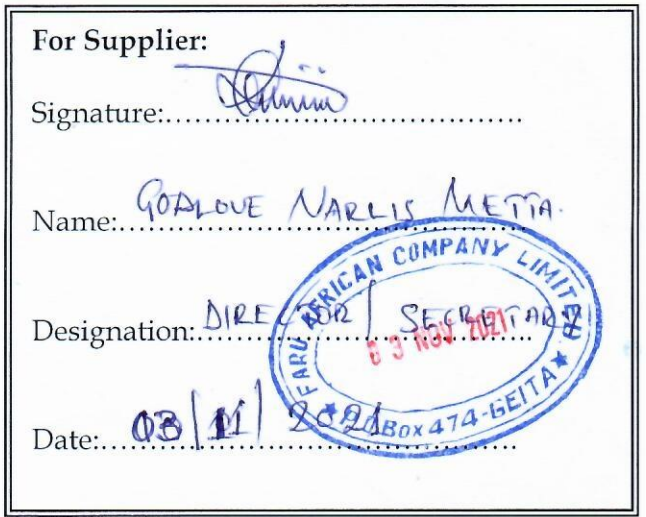 For Supplier:
Signature:....................................
Name: GODLOVE NARCIS METTA.
Designation: DIRECTOR / SECRETARY
Date: 03/11/2021
FARU AFRICAN COMPANY LIMITED
03 NOV 2021
★ P.O Box 474-GEITA ★